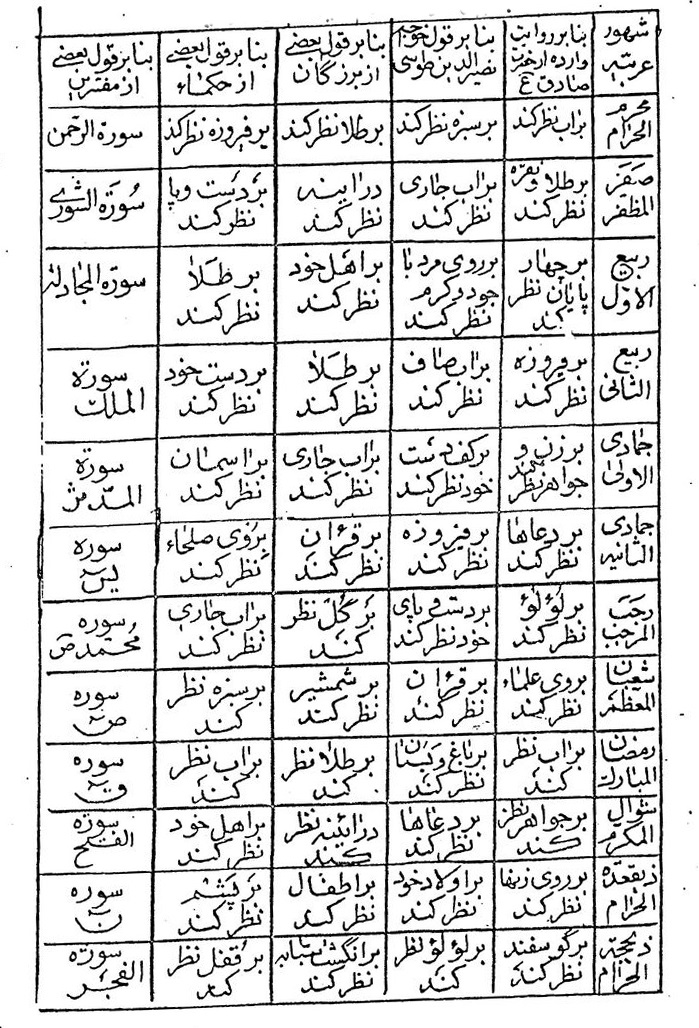 شهور عربیه | بنابر روایت وارده از حضرت صادق ع | بنابر قول خواجه نصیرالدین طوسی | بنابر قول بعضی از بزرگان | بنابر قول بعضی از حکماء | بنابر قول بعضی از مفسّرین
محرم الحرام | براب نظر کند | بر سبزه نظر کند | بر طلا نظر کند | بر فیروزه نظر کند | سورة الرحمن
صفر المظفر | بر طلا و نقره نظر کند | براب جاری نظر کند | در اینه نظر کند | بر دست و پا نظر کند | سورة الشوری
ربیع الاول | بر چهار پایان نظر کند | بر روی مرد با جود و کرم نظر کند | بر اهل خود نظر کند | بر طلا نظر کند | سورة المجادلة
ربیع الثانی | بر فیروزه نظر کند | براب صاف نظر کند | بر طلا نظر کند | بر دست خود نظر کند | سورة الملک
جمادی الاولی | بر زن و جواهر نظر کند | بر کف دست خود نظر کند | براب جاری نظر کند | بر اسمان نظر کند | سورة المدّثر
جمادی الثانیه | بر دعاها نظر کند | بر فیروزه نظر کند | بر قرءان نظر کند | بر روی صلحاء نظر کند | سوره یسٓ
رجب المرجب | بر لؤلؤ نظر کند | بر دست و پای خود نظر کند | بر گل نظر کند | براب جاری نظر کند | سوره محمد ص
شعبان المعظم | بروی علماء نظر کند | بر قرءان نظر کند | بر شمشیر نظر کند | بر سبزه نظر کند | سوره صٓ
رمضان المبارک | براب نظر کند | بر باغ و بستان نظر کند | بر طلا نظر کند | براب نظر کند | سوره قٓ
شوال المکرم | بر جواهر نظر کند | بر دعاها نظر کند | در ائینه نظر کند | بر اهل خود نظر کند | سورة الفتح
ذیقعدة الحرام | بر روی زنها نظر کند | بر اولاد خود نظر کند | بر اطفال نظر کند | بر پشم نظر کند | سوره نٓ
ذیحجة الحرام | بر گوسفند نظر کند | بر لؤلؤ نظر کند | بر انگشت سبابه نظر کند | بر قفل نظر کند | سورة الفجر